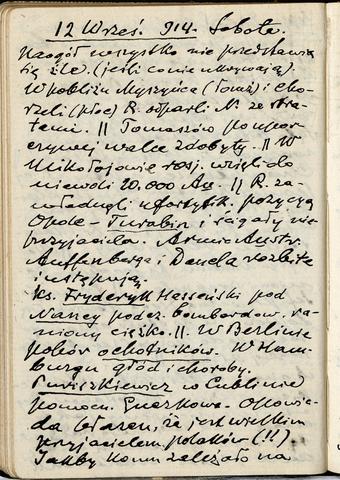 12 Wrześ. 914. Sobota.
Naogół wszystko nie przedstawia
się źle. (jeśli co nie ukrywają).
W pobliżu Myszyńca (Łomż) i Cho-
rzeli (płoc) R. odparli N. ze stra-
tami. || Tomaszów po upor-
czywej walce zdobyty. || W
Mikołajowie rosj. wzięli do
niewoli 20.000 Au. || R. za-
władnęli ufortyfik. pozycyą
Opole - Turobin i ścigały nie-
przyjaciela. Armie Austr.
Auffenberga i Dankla rozbite
i ustępują.
Ks. Fryderyk Hesseński pod
Nancy podcz. bombardow. ra-
niony ciężko. || W Berlinie
pobór ochotników. W Ham-
burgu głód i choroby.
Puriszkiewicz w Lublinie
pomocn. Guczkowa. Opowia-
da, że jest wielkim
przyjacielem polaków (!!).
Jakby komu zależało na